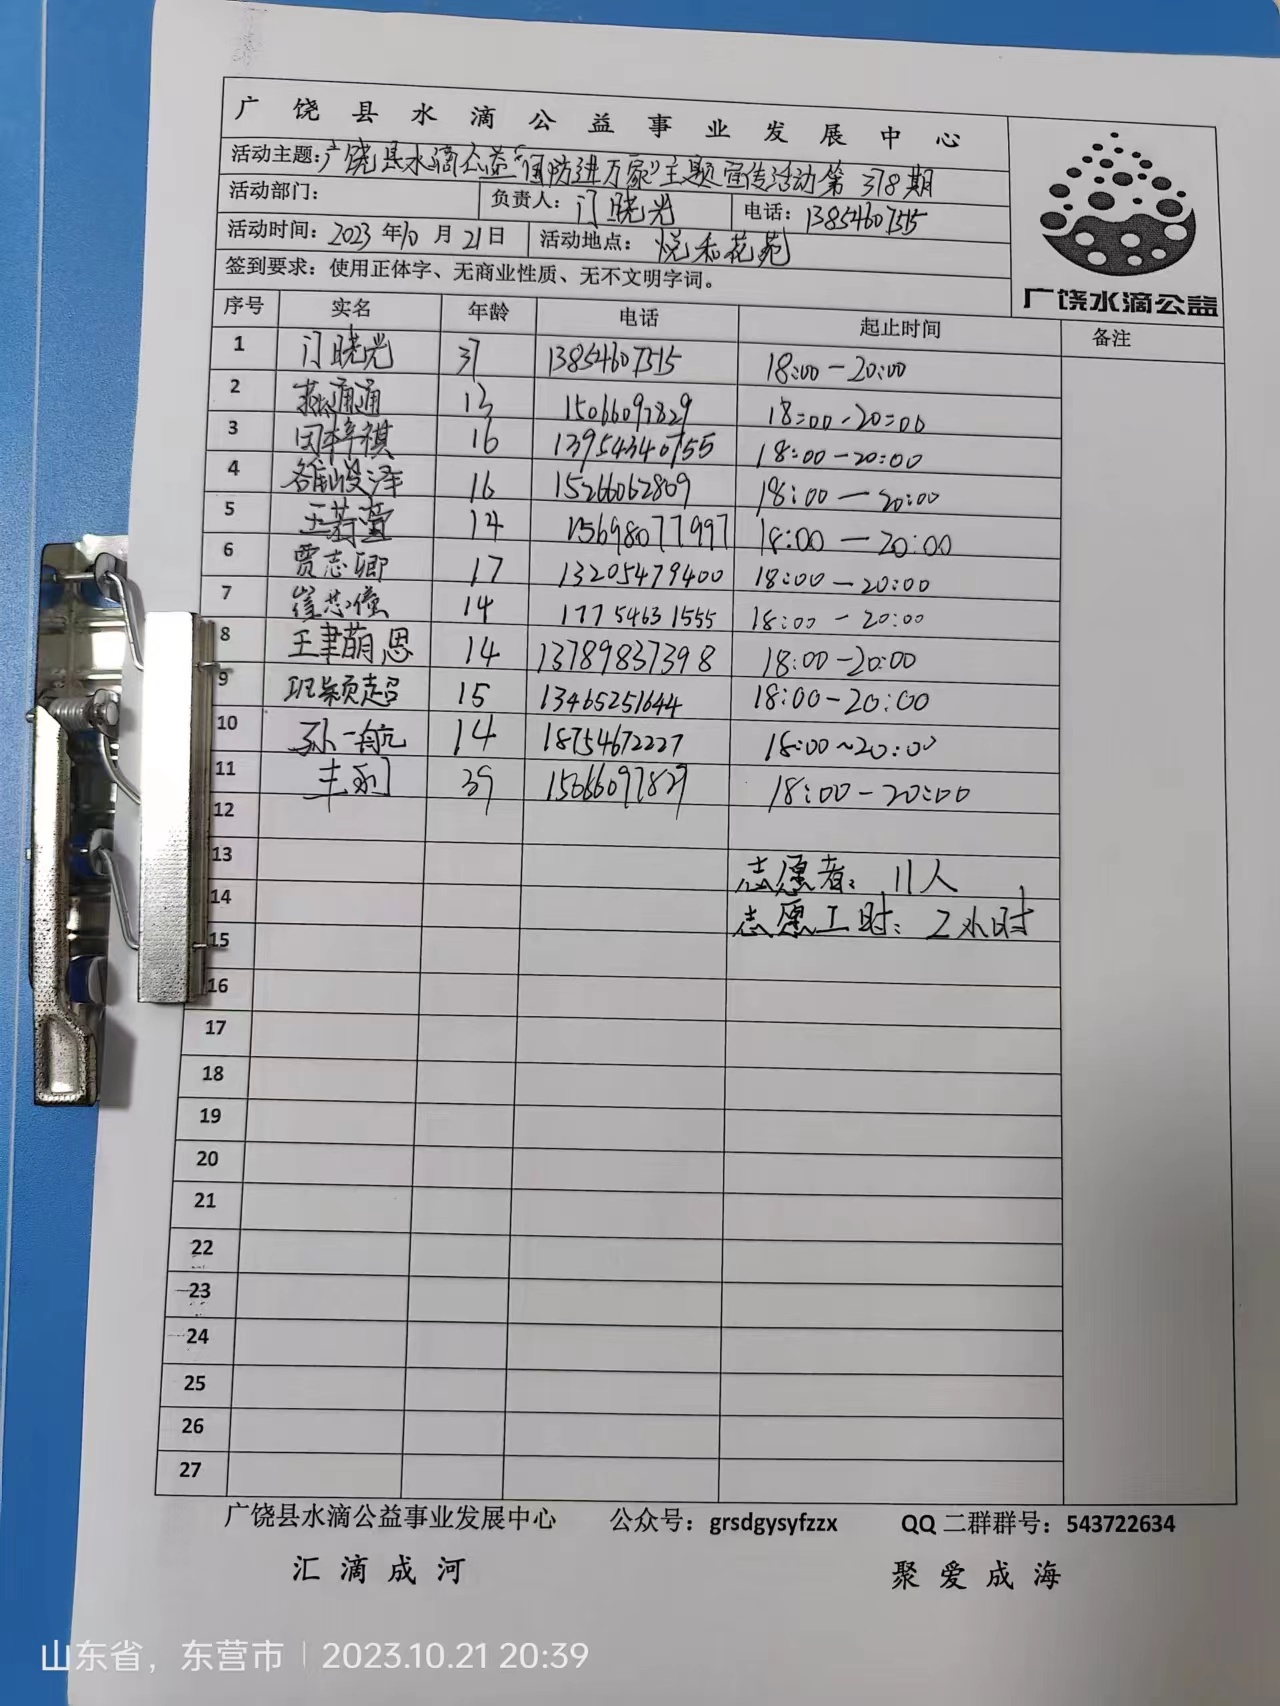 广饶县水滴公益事业发展中心
活动主题:广饶县水滴公益“国防进万家”主题宣传活动第378期
活动部门: 负责人: 门晓光 电话: 13854607515
活动时间: 2023年10月21日 活动地点: 悦和花苑
签到要求：使用正体字、无商业性质、无不文明字词。
广饶水滴公益
序号 实名 年龄 电话 起止时间 备注
1 门晓光 37 13854607515 18:00-20:00
2 13 15066097829 18:00-20:00
3 闫梓祺 16 13954340755 18:00-20:00
4 16 15266062809 18:00-20:00
5 14 15698077997 18:00-20:00
6 贾志卿 17 13205479400 18:00-20:00
7 14 17754631555 18:00-20:00
8 王聿萌恩 14 13789837398 18:00-20:00
9 班颖超 15 13465251644 18:00-20:00
10 孙一航 14 18754672227 18:00~20:00
11 39 15066097829 18:00-20:00
12
13 志愿者：11人
14 志愿工时：2小时
15
16
17
18
19
20
21
22
23
24
25
26
27
广饶县水滴公益事业发展中心 公众号：grsdgysyfzzx QQ二群群号：543722634
汇滴成河 聚爱成海
山东省，东营市 | 2023.10.21 20:39